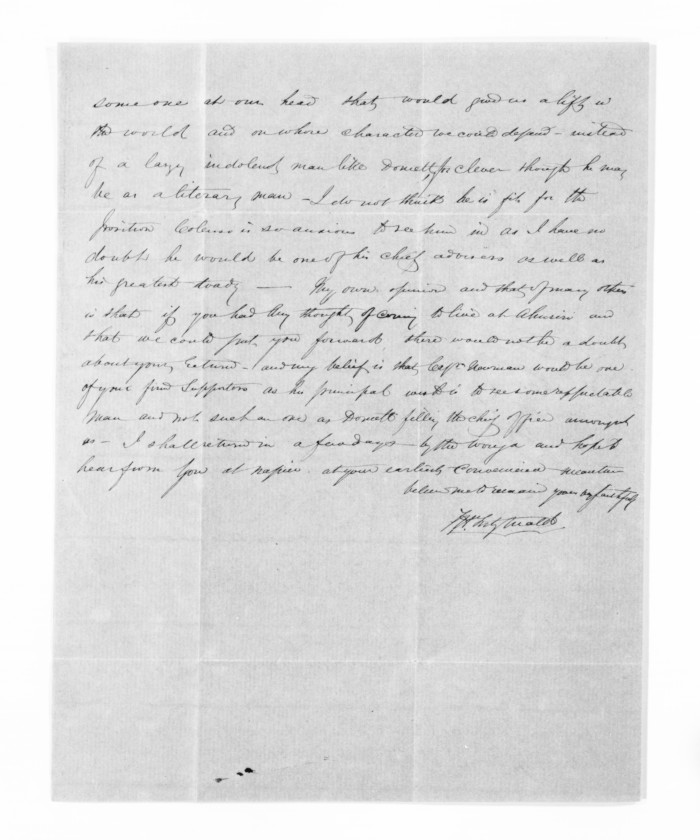 some one at our head that would give us a lift in
the world and on whose character we could depend - instead
of a lazy indolent man like Domett, for clever though he may
be as a literary man - I do not think he is fit for the
position Colenso is so anxious to see him in as I have no
doubt he would be one of his chief advisers as well as
his greatest toady — My own opinion and that of many others
is that if you had any thought of coming to live at Ahuriri and
that we could put you forward, there would not be a doubt
about your return - and my belief is that Capt Newman would be one
of your first supporters as his principal wish is to see some respectable
man and not such an one as Domett filling the chief office amongst
us - I shall return in a few days by the Wonga and hope to
hear from you at Napier at your earliest convenience meantime
believe me to remain yours very faithfully
Fitzgerald